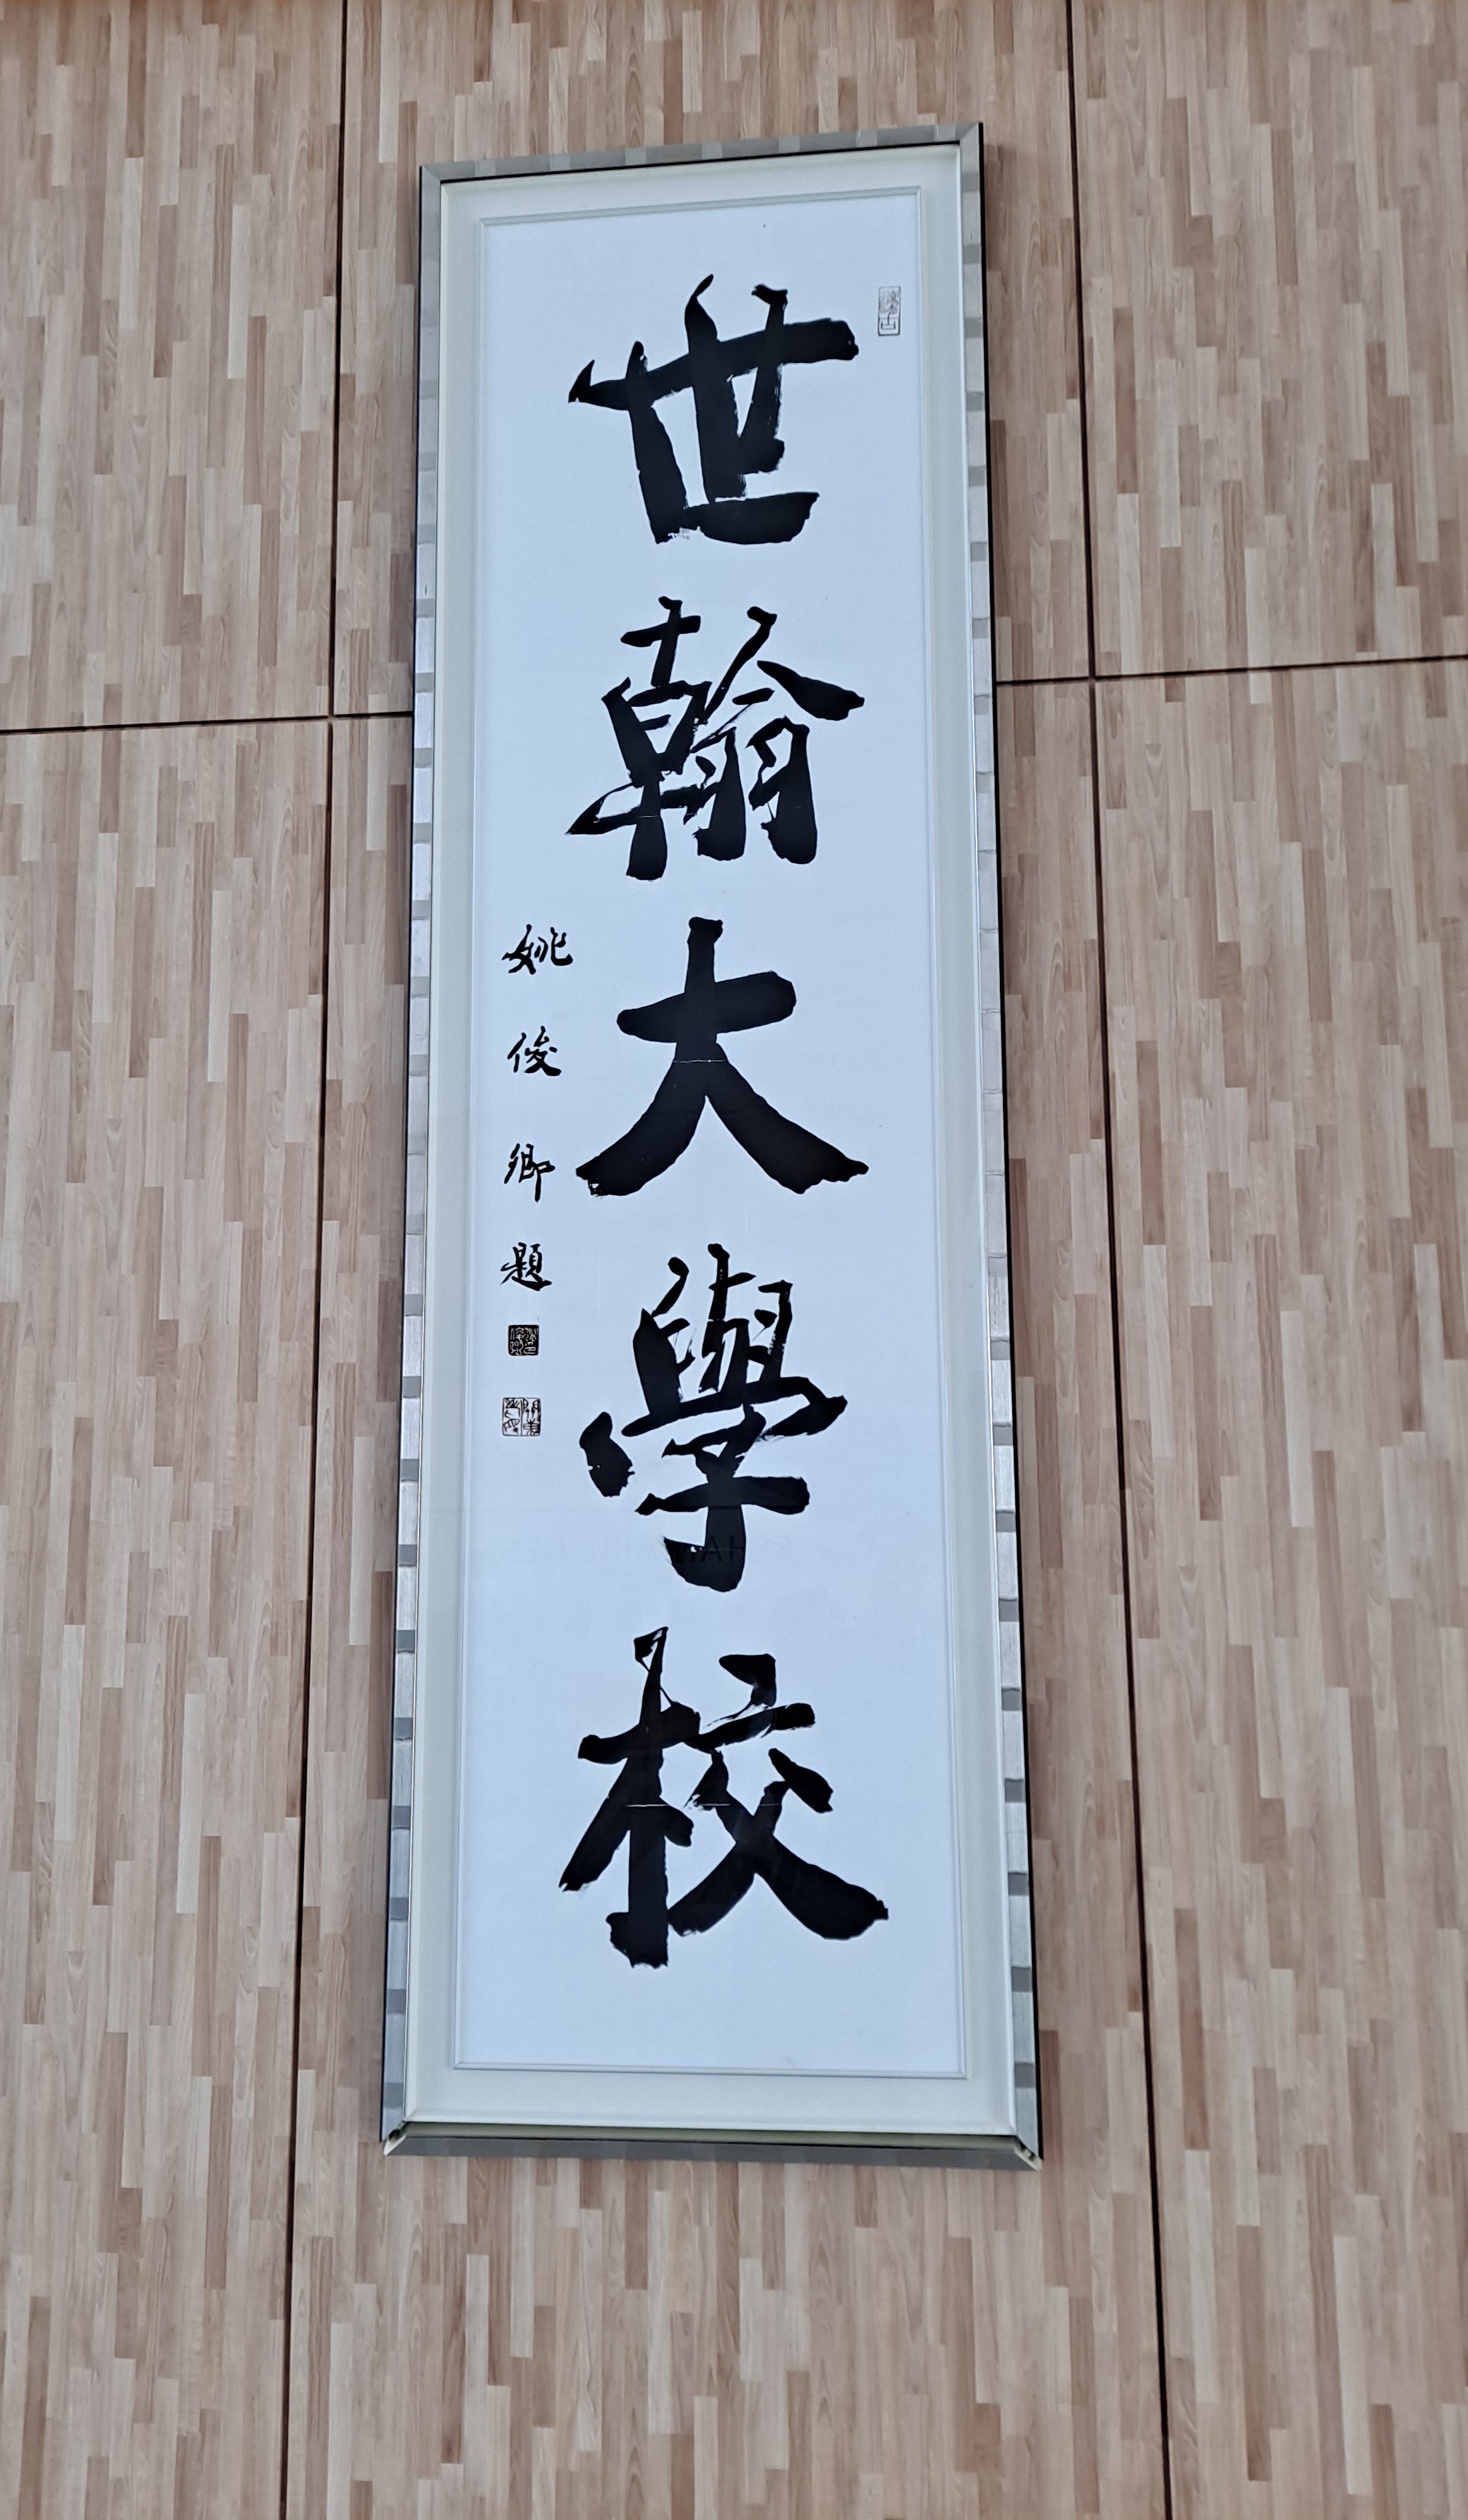 世翰大學校
姚俊卿題